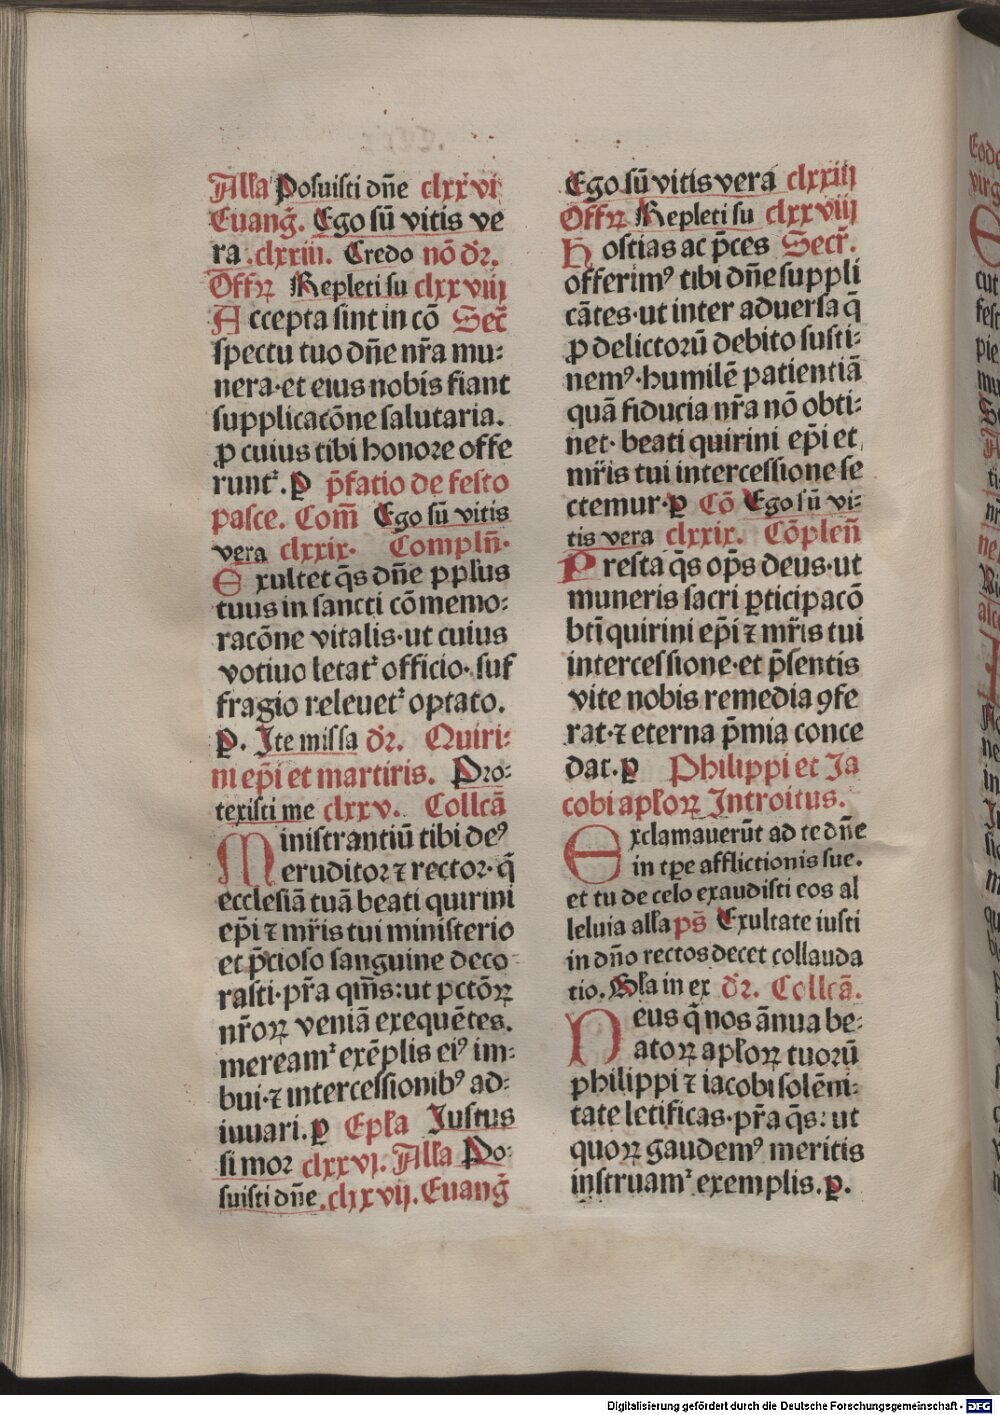 Alla Posuisti dn̄e clxxvi
Euang̃. Ego sū vitis ve
ra .clxxiii. Credo nō dr̄.
Offꝝ Repleti su clxxviij
Accepta sint in cō Sec̄
spectu tuo dn̄e nr̄a mu⸗
nera·et eius nobis fiant
supplicatōne salutaria.
ꝓ cuius tibi honore offe
runtᷣ.ꝑ p̄fatio de festo
pasce. Com̄ Ego sū vitis
vera clxxix· Compln̄·
Exultet q̄s dn̄e ppl̓us
tuus in sancti cōmemo⸗
racōne vitalis·ut cuius
votiuo letatᷣ officio· suf
fragio releuetᷣ optato.
ꝑ. Ite missa dr̄. Quiri⸗
ni ep̄i et martiris. Pro⸗
texisti me clxxv. Collcā
Ministrantiū tibi deꝰ
eruditor ⁊ rector·q̄
ecclesiā tuā beati quirini
ep̄i ⁊ mr̄is tui ministerio
et p̄cioso sanguine deco⸗
rasti·pr̄a qm̄s:ut pctōꝝ
nr̄oꝝ veniā exequētes.
mereamᷣ exēplis eiꝰ im⸗
bui·⁊ intercessionibꝰ ad⸗
iuuari.ꝑ Epl̓a Iustus
si mor clxxvj. Alla Po⸗
suisti dn̄e.clxxvij.Euang̃
Ego sū vitis vera clxxiij
Offꝝ Repleti su clxxviij
Hostias ac p̄ces Secr̄.
offerimꝰ tibi dn̄e suppli
cātes·ut inter aduersa q̄
ꝓ delictorū debito susti⸗
nemꝰ·humilē patientiā
quā fiducia nr̄a nō obti⸗
net· beati quirini ep̄i et
mr̄is tui intercessione se
ctemur·ꝑ Cō Ego sū vi⸗
tis vera clxxix. Cōplen̄
Presta q̄s op̄s deus·ut
muneris sacri ꝑticipacō
bt̄i quirini ep̄i ⁊ mr̄is tui
intercessione·et p̄sentis
vite nobis remedia ꝯfe
rat·⁊ eterna p̄mia conce
dat.ꝑ Philippi et Ja
cobi apl̓oꝝ Introitus.
Exclamauerūt ad te dn̄e
in tꝑe afflictionis sue.
et tu de celo exaudisti eos al
leluia alla ps̄ Exultate iusti
in dn̄o rectos decet collauda
tio. Gl̓a in ex dr̄. Collcā.
Deus q̄ nos ānua be⸗
atoꝝ apl̓oꝝ tuorū
philippi ⁊ iacobi solēni⸗
tate letificas·pr̄a q̄s: ut
quoꝝ gaudemꝰ meritis
instruamᷣ exemplis.ꝑ.
Digitalisierung gefördert durch die Deutsche Forschungsgemeinschaft - DFG